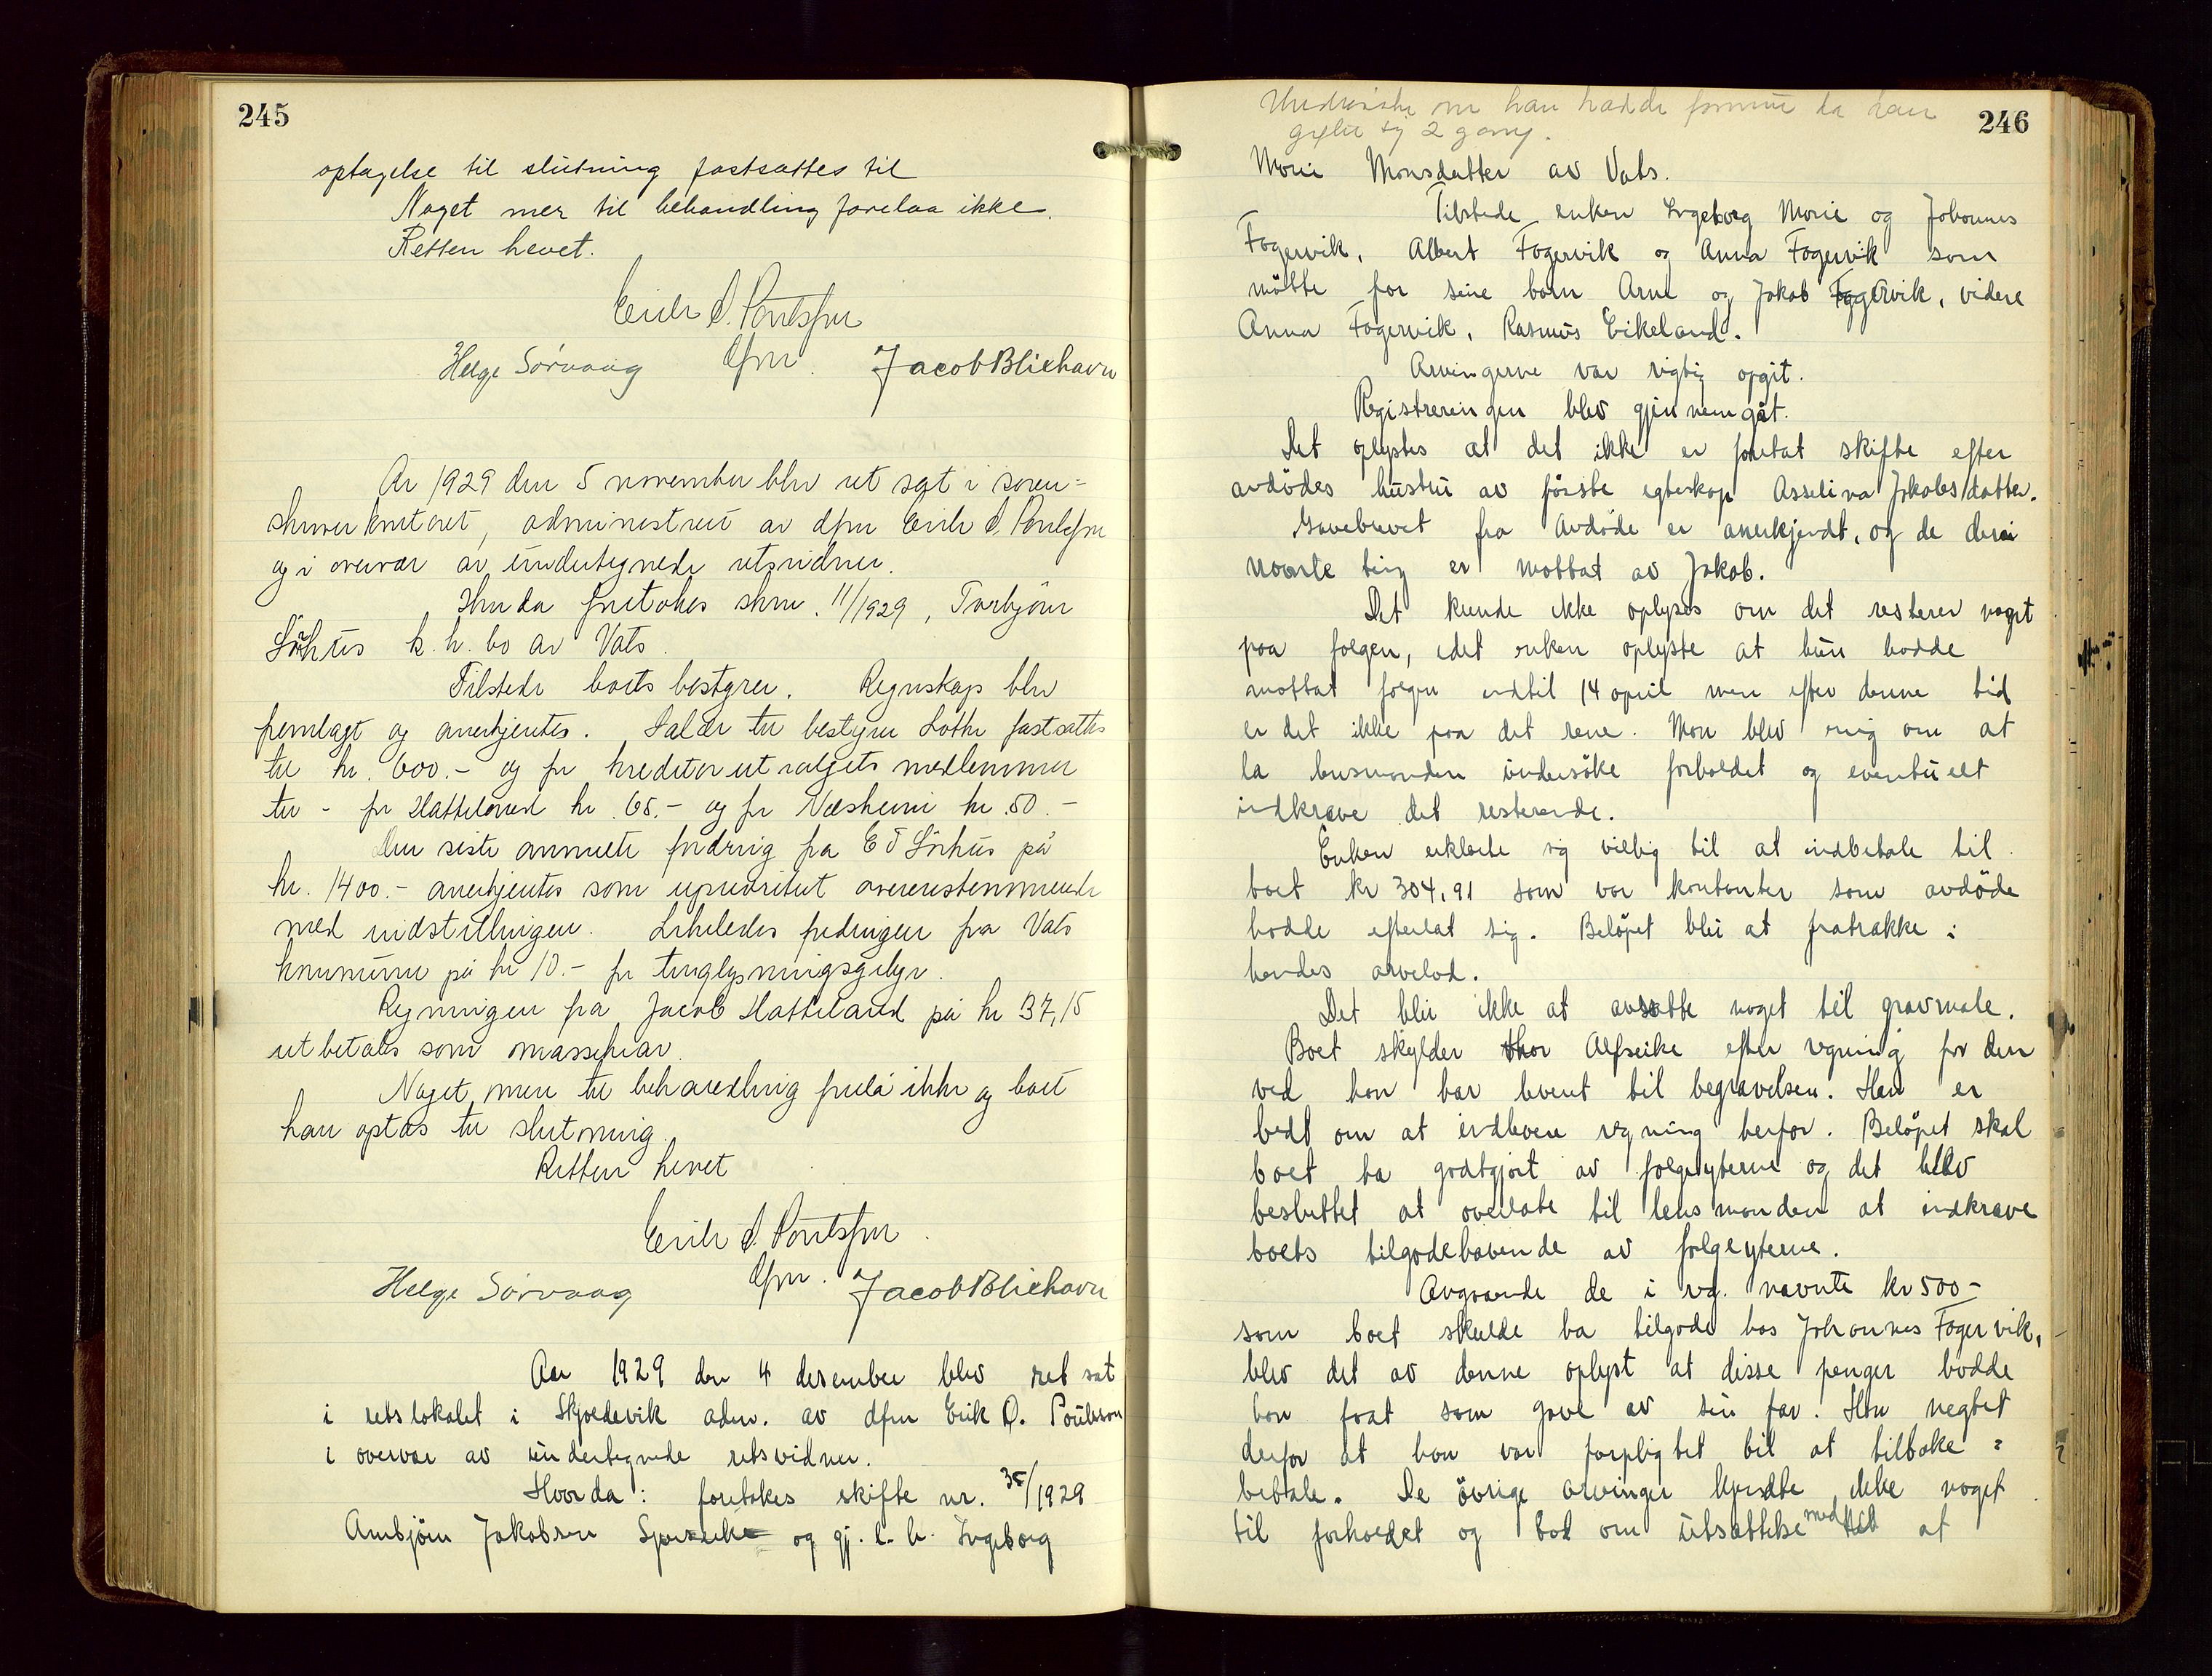 245
optagelse til slutning fastsattes til
Noget mer til behandling forelaa ikke.
Retten hevet.
Erik O. Poulsson
dfm
Helge Sörvaag JacobBliehavn
År 1929 den 5 november blev ret sat i soren=
skriverkontoret, administrert av dfm Erik O. Poulsson
og i overvær av undertegnede retsvidner.
Hvor da foretokes skm. 11/1929, Torbjörn
Lörhus k. h. bo av Vats.
Tilstede boets bestyrer. Regnskap blev
fremlagt og anerkjentes. Salær til bestyrer Lothe fastsattes
til kr. 600.- og for kreditorutvalgets medlemmer
til - for Hatteland kr. 65.- og for Næsheim kr. 50.-
Den siste anmeldte fordring fra E T Lörhus på
kr. 1400.- anerkjentes som uprioritert overensstemmende
med indstillingen. Likeledes fordringen fra Vats
kommune på kr 10.- for tinglysningsgebyr.
Regningen fra Jacob Hatteland på kr 37,15
utbetales som massekrav.
Noget mer til behandling forelå ikke og boet
kan optas til slutning.
Retten hevet
Erik O. Poulsson.
dfm.
Helge Sörvaag JacobBliehavn
Aar 1929 den 4 desember blev ret sat
i retslokalet i Skjoldevik adm. av dfm Erik O. Poulsson
i overvær av undertegnede retsvidner.
Hvor da: foretokes skifte nr. 35/1929
Arnbjörn Jakobsen og gj. l. h. Ingeborg
246
Undersöke om han hadde formue da han
giftet sig 2 gang.
Marie Monsdatter av Vats.
Tilstede enken Ingeborg Marie og Johannes
Fagervik, Albert Fagervik og Anna Fagervik som
mötte for sine barn Arne og Jakob Fagervik, videre
Anna Fagervik, Rasmus Eikeland.
Arvingerne var rigtig opgit.
Registreringen blev gjennemgåt.
Det oplystes at det ikke er foretat skifte efter
avdödes hustru av förste egteskap Asselina Jakobsdatter.
Gavebrevet fra avdöde er anerkjendt, og de deri
nævnte ting er mottat av Jakob.
Det kunde ikke oplyses om det resterer noget
paa folgen, idet enken oplyste at hun hadde
mottat folgen indtil 14 april men efter denne tid
er det ikke paa det rene. Man blev enig om at
la lensmanden undersöke forholdet og eventuelt
indkræve det resterende.
Enken erklærte sig villig til at indbetale til
boet kr 304,91 som var kontanter som avdöde
hadde efterlat sig. Belöpet blir at fratrække i
hendes arvelod.
Det blir ikke at avsætte noget til gravmæle.
Boet skylder Thor Alfseike efter regning for den
ved han har levert til begravelsen. Han er
bedt om at indlevere regning herfor. Belöpet skal
boet ha godtgjort av folgeyterne og det blev
besluttet at overlate til lensmanden at indkræve
boets tilgodehavende av folgeyterne.
Avgaaende de i reg. nævnte kr 500-
som boet skulde ha tilgode hos Johannes Fagervik,
blev det av denne oplyst at disse penger hadde
han faat som gave av sin far. Han negtet
derfor at han var forpligtet til at tilbake =
betale. De övrige arvinger kjendte ikke noget
til forholdet og bad om utsættelse med at